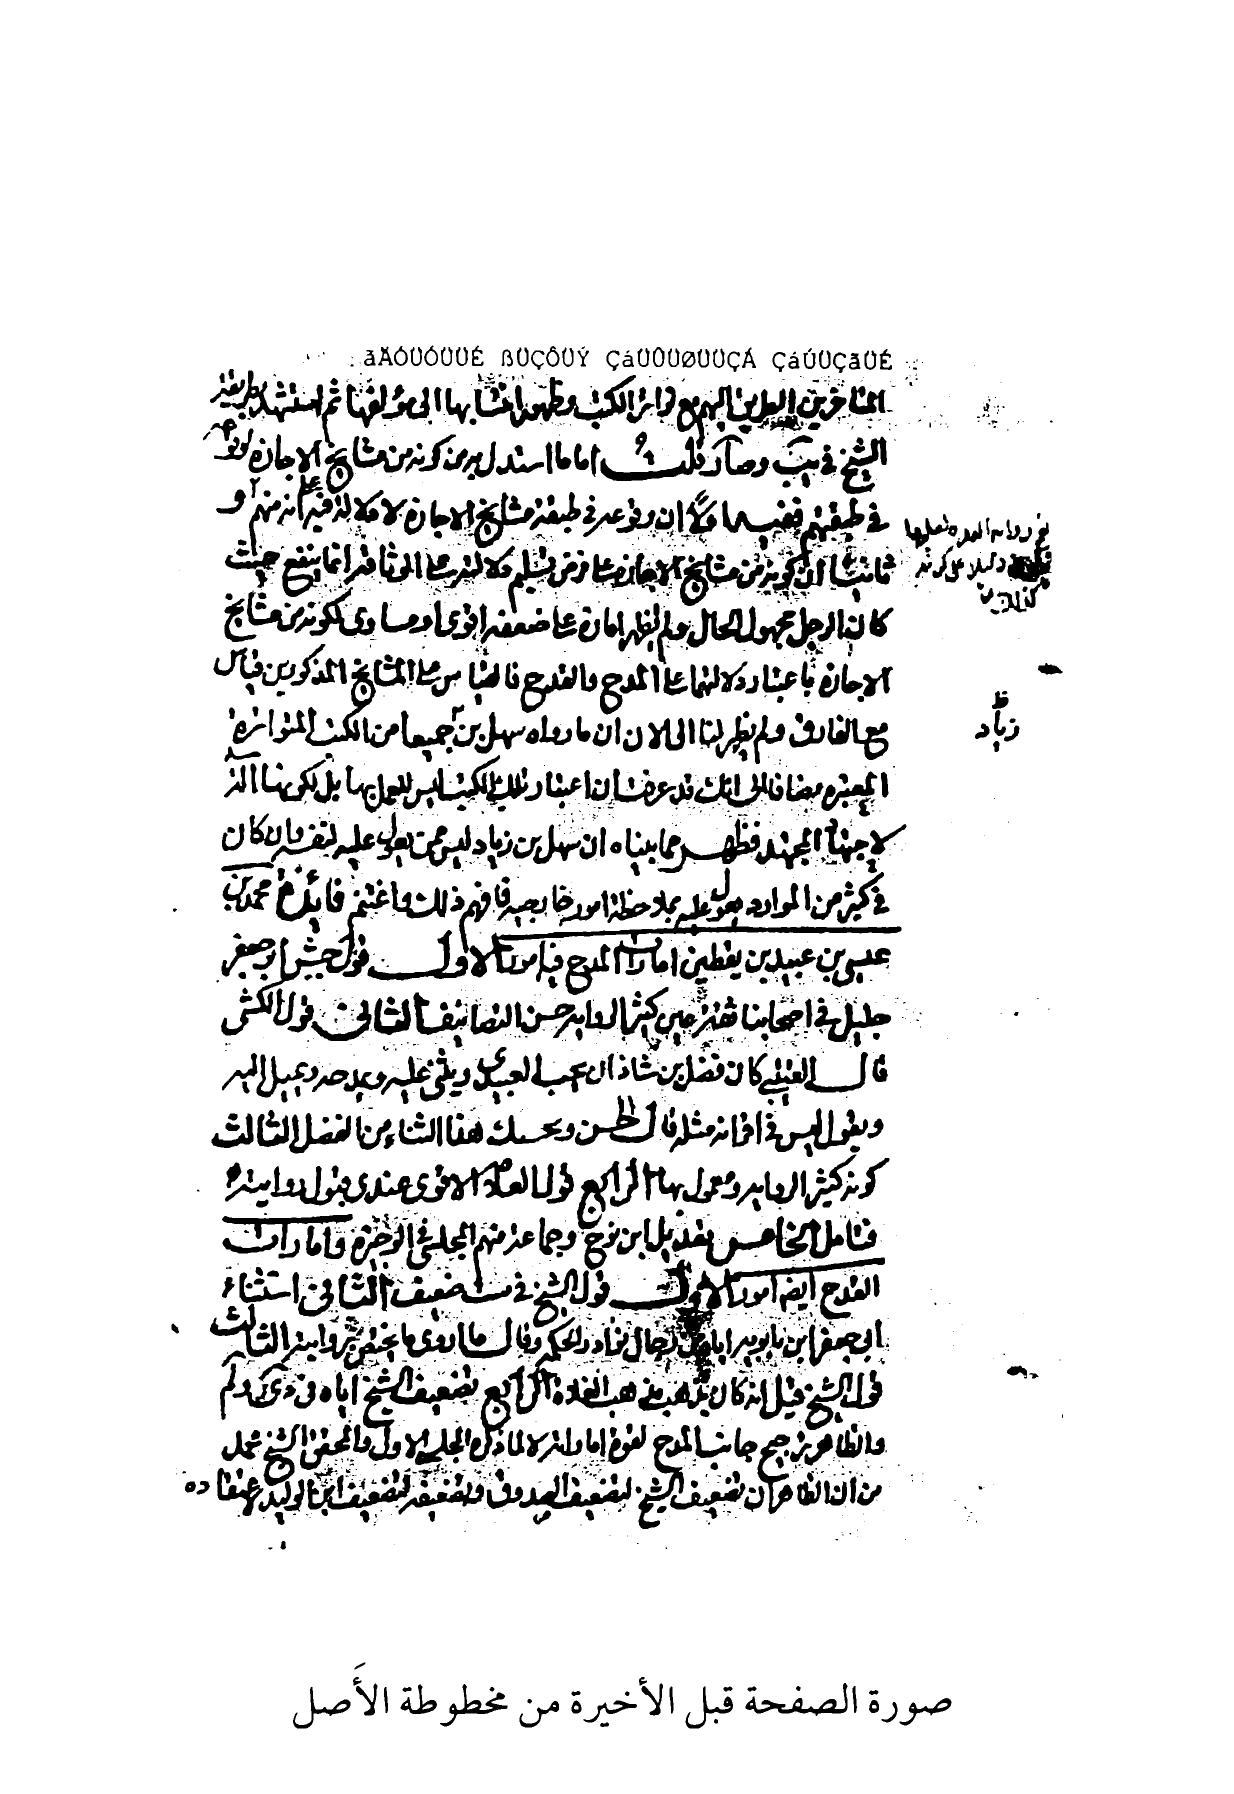 ãÄÓÜÓÜÜÉ ßÜÇÔÜÝ ÇáÜÛÜØÜÜÇÁ ÇáÚÜÇãÜÉ
المتأخرين الطريق اليهم مع تواتر الكتب وظهور انتسابها الى مؤلفها ثم استشهد بطريقة
الشيخ في يب وصا قلت اما ما استدل به من كونه من مشايخ الاجازة لوقوعه
في طبقتهم ففيه اولا ان وقوعه في طبقة مشايخ الاجازة لا دلالة فيه على انه منهم و
ثانيا ان كونه من مشايخ الاجازة على فرض تسليم دلالته على الوثاقة انما ينفع حيث
كان الرجل مجهول الحال ولم يظهر امارة على ضعفه اقوى او مساوى لكونه من مشايخ
الاجازة باعتبار دلالتهما على المدح والقدح فالقياس على المشايخ المذكورين قياس
مع الفارق ولم يظهر لنا الى الان ان ما رواه سهل بن جميعا من الكتب المتواترة
زياد
المعتبرة مضافا الى انك قد عرفت ان اعتبار تلك الكتب ليس للعمل بها بل لكونها
لاجتهاد المجتهد فظهر مما بيناه ان سهل بن زياد ليس ممن يعول عليه لنفسه وان كان
في كثير من الموارد يعول عليه بملاحظة امور خارجية فافهم ذلك واغتنم فائدة محمد بن
عيسى بن عبيد بن يقطين امارات المدح فيه امور الاول قول جش ابو جعفر
جليل في اصحابنا ثقة عين كثير الرواية حسن التصانيف الثاني قول الكشي
قال القتيبي كان فضل بن شاذان يحب العبيدي ويثني عليه ويمدحه ويميل اليه
ويقول ليس في اقرانه مثله قال وبحسبك هذا الثناء من الفضل الثالث
كونه كثير الرواية ومعمول بها الرابع قول العلامة الاقوى عندي قبول روايته
فتامل الخامس تعديل ابن نوح وجماعة منهم المجلسي في الوجيزة وامارات
القدح ايضا امور الاول قول الشيخ في ست ضعيف الثاني استثناء
ابي جعفر ابن بابويه اياه من رجال نوادر الحكمة وقال ما اروى ما يختص بروايته الثالث
قول الشيخ قيل انه كان يذهب مذهب الغلاة الرابع تضعيف الشيخ اياه في دى كر ولم
والظاهر ترجيح جانب المدح لقوة اماراته لا لما ذكره المجلسي الاول والمحقق الشيخ محمد
من ان الظاهر ان تضعيف الشيخ لتضعيف الصدوق وتضعيفه لتضعيف ابن الوليد
صورة الصفحة قبل الأخيرة من مخطوطة الأَصل